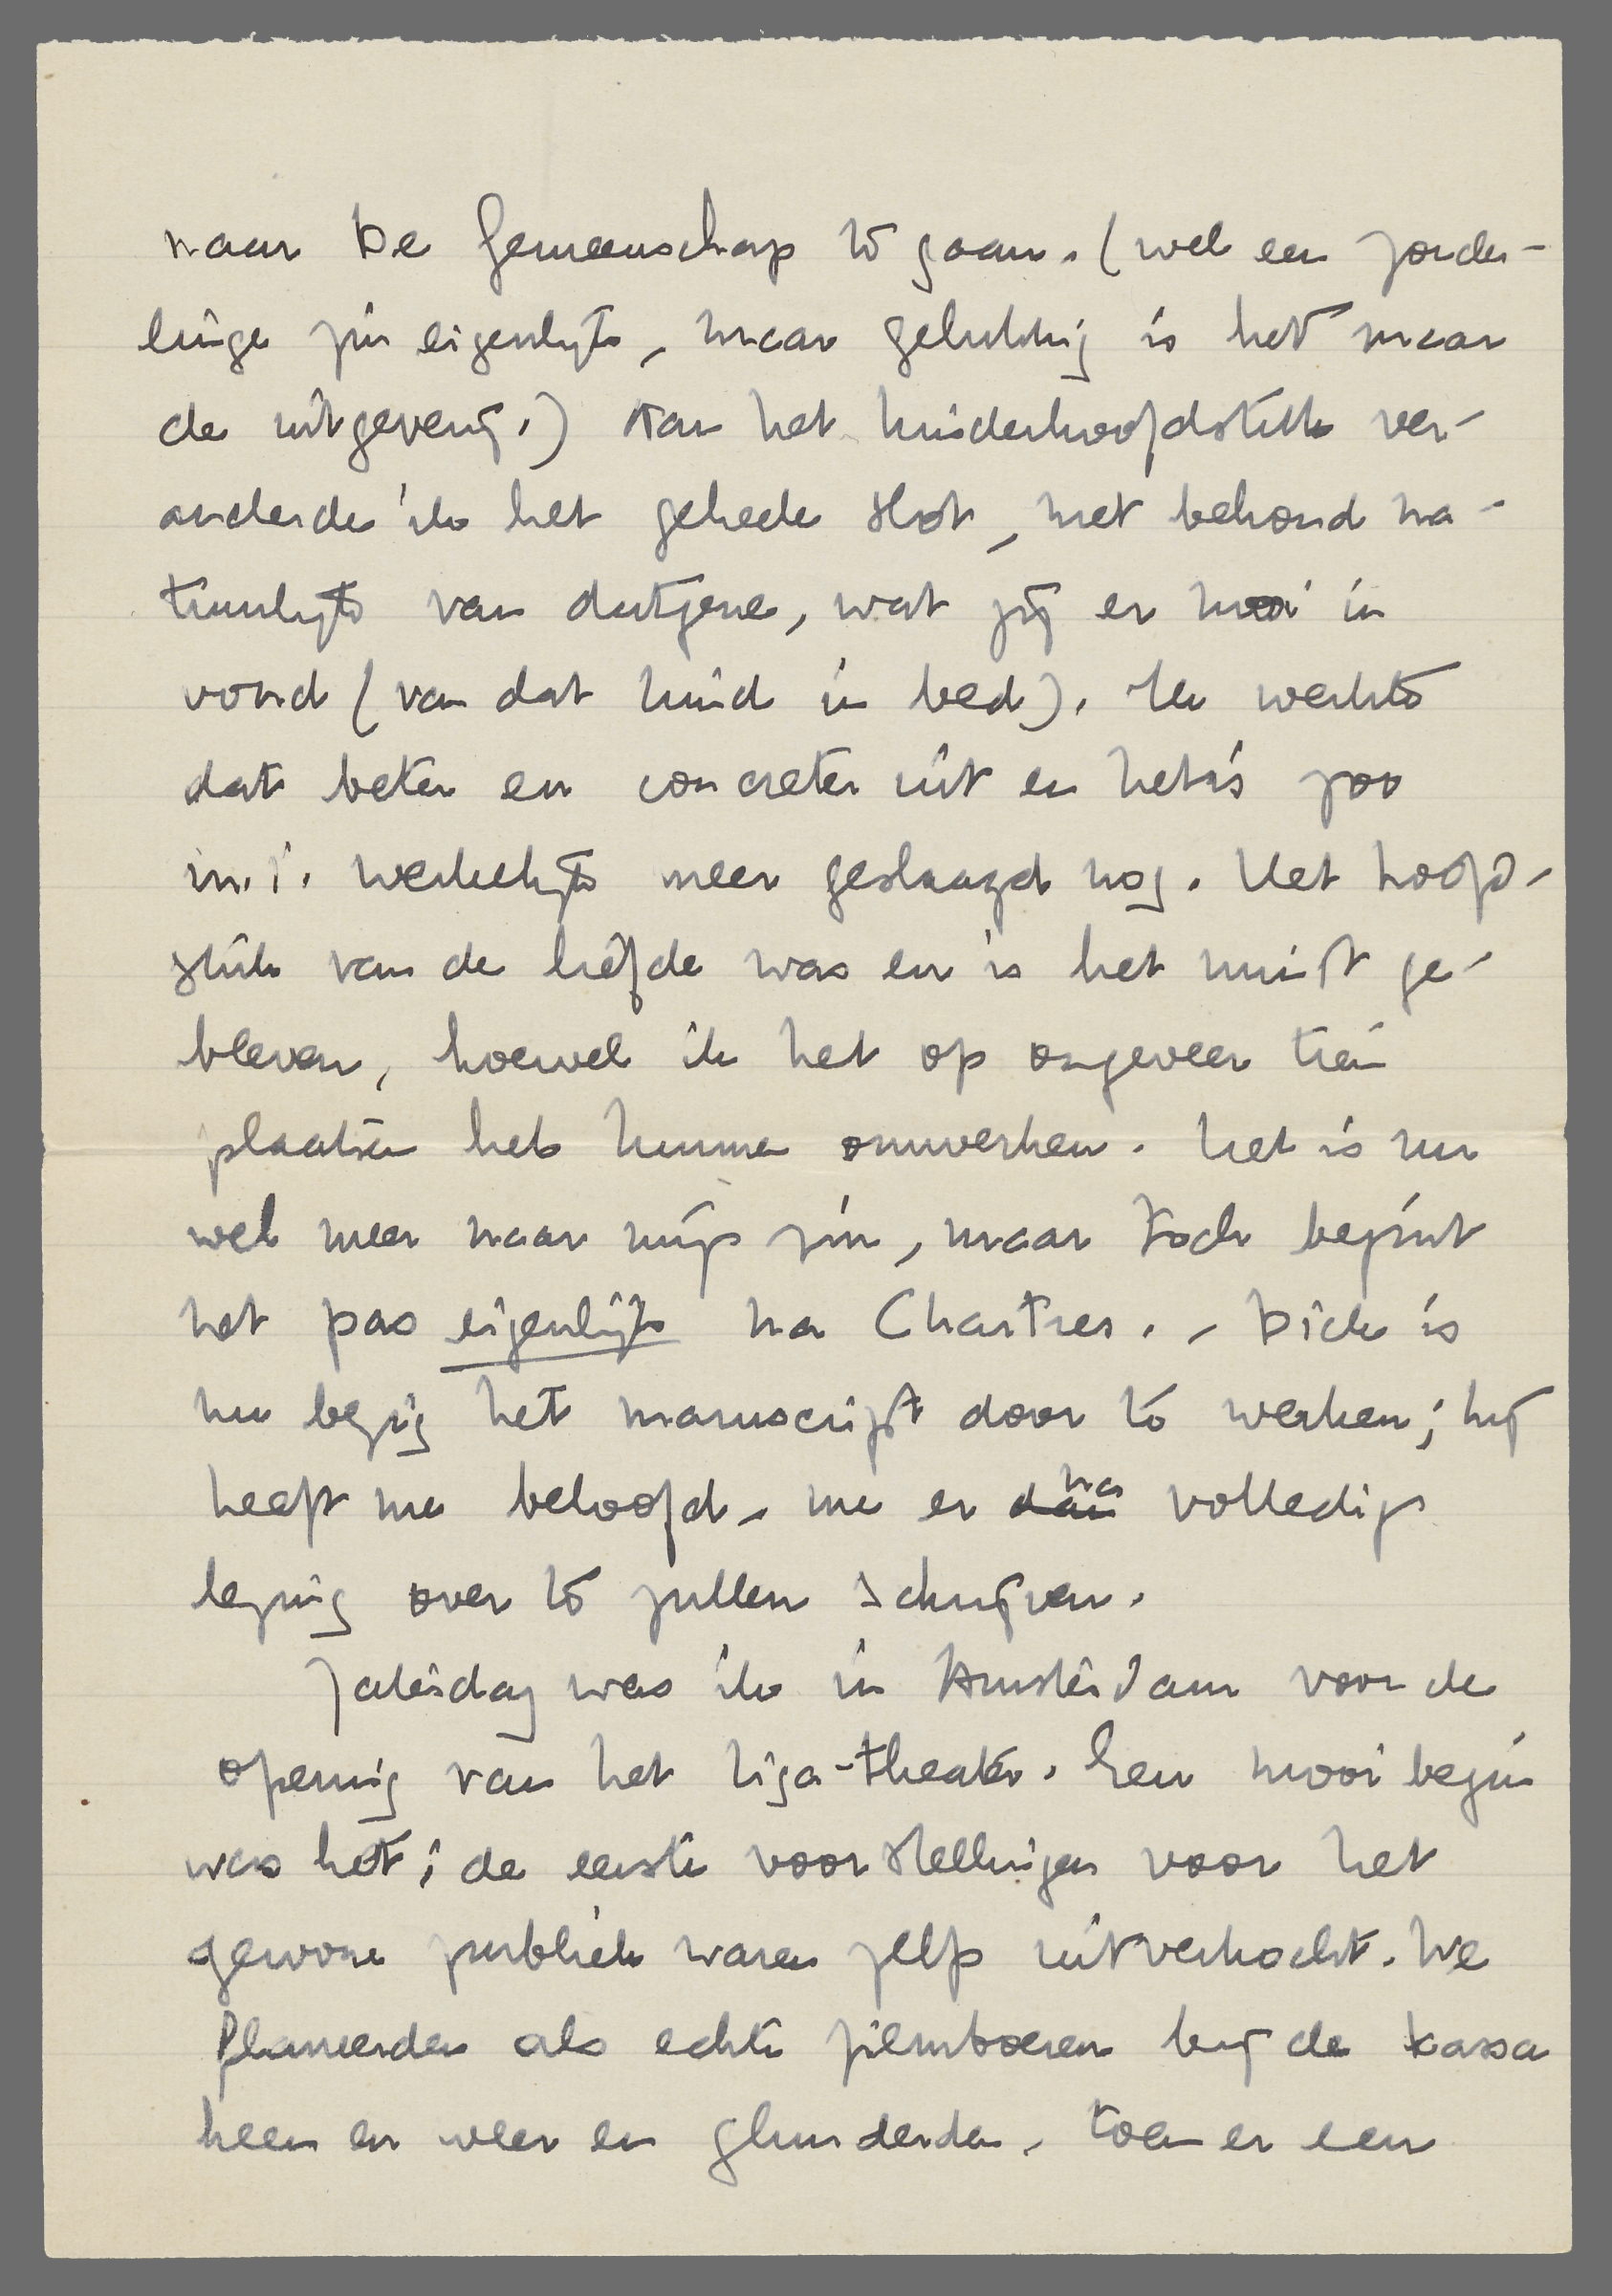 naar De Gemeenschap te gaan. (wel een zonder-
linge zin eigenlijk, maar gelukkig is het maar
de uitgeverij.) Aan het kinderhoofdstuk ver-
anderde ik het geheele slot, met behoud na-
tuurlijk van datgene, wat jij er mooi in
vond (van dat kind in bed). Ik werkte
dat beter en concreter uit en het is zoo
m.i. werkelijk meer geslaagd nog. Het hoofd-
stuk van de liefde was en is het minst ge-
bleven, hoewel ik het op ongeveer tien
plaatsen heb kunnen omwerken. Het is nu
wel meer naar mijn zin, maar toch begint
het pas eigenlijk na Chartres. - Dick is
nu bezig het manuscript door te werken; hij
heeft me beloofd, me er dan na volledige
lezing over te zullen schrijven.
Zaterdag was ik in Amsterdam voor de
opening van het Liga-theater. Een mooi begin
was het; de eerste voorstellingen voor het
gewone publiek waren zelfs uitverkocht. We
flaneerden als echte filmboeren bij de kassa
heen en weer en glunderden, toen er een